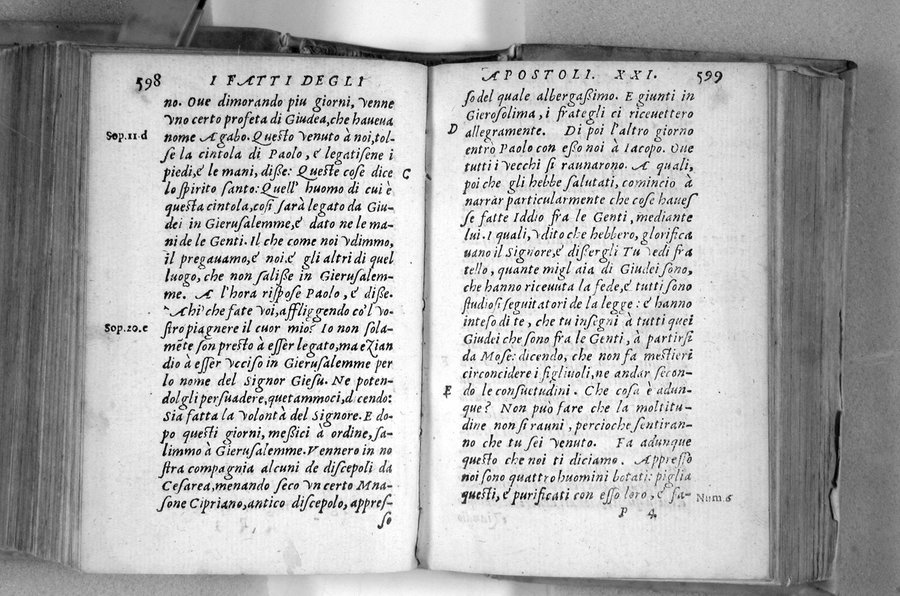 598 I FATTI DEGLI
no. Oue dimorando piu giorni, venne
vno certo profeta di Giudea, che haueua
Sop.11.d
nome Agabo. Questo venuto à noi, tol-
se la cintola di Paolo, & legatisene i
piedi, & le mani, disse: Queste cose dice
C
lo spirito santo: Quell' huomo di cui è
questa cintola, cosi sarà legato da Giu-
dei in Gierusalemme, & dato ne le ma-
ni de le Genti. Il che come noi vdimmo,
il pregauamo, & noi & gli altri di quel
luogo, che non salisse in Gierusalem-
me. A l'hora rispose Paolo, & disse.
Ahi che fate voi, affliggendo co'l vo-
Sop.20.e
stro piagnere il cuor mio? Io non sola-
mẽte son presto à esser legato, ma eZian
dio à esser vcciso in Gierusalemme per
lo nome del Signor Giesu. Ne poten-
dolgli persuadere, quetammoci, d cendo:
Sia fatta la volontà del Signore. E do-
po questi giorni, messici à ordine, sa-
limmo à Gierusalemme. Vennero in no
stra compagnia alcuni de discepoli da
Cesarea, menando seco vn certo Mna-
sone Cipriano, antico discepolo, appres-
so
APOSTOLI. XXI. 599
so del quale albergassimo. E giunti in
Gierosolima, i frategli ci riceuettero
D
allegramente. Di poi l'altro giorno
entrò Paolo con esso noi à Iacopo. Oue
tutti i vecchi si raunarono. A quali,
poi che gli hebbe salutati, comincio à
narrar particularmente che cose haues
se fatte Iddio fra le Genti, mediante
lui. I quali, vdito che hebbero, glorifica
uano il Signore, & dissergli Tu vedi fra
tello, quante migl aia di Giudei sono,
che hanno riceuuta la fede, & tutti sono
studiosi seguitatori de la legge: & hanno
inteso di te, che tu insegni à tutti quei
Giudei che sono fra le Genti, à partirsi
da Mose: dicendo, che non fa mestieri
circoncidere i figliuoli, ne andar secon-
E
do le consuetudini. Che cosa è adun-
que? Non può fare che la moltitu-
dine non si rauni, percioche sentiran-
no che tu sei venuto. Fa adunque
questo che noi ti diciamo. Appresso
noi sono quattro huomini botati: piglia
questi, & purificati con esso loro, & fa-
Num.6
P 4